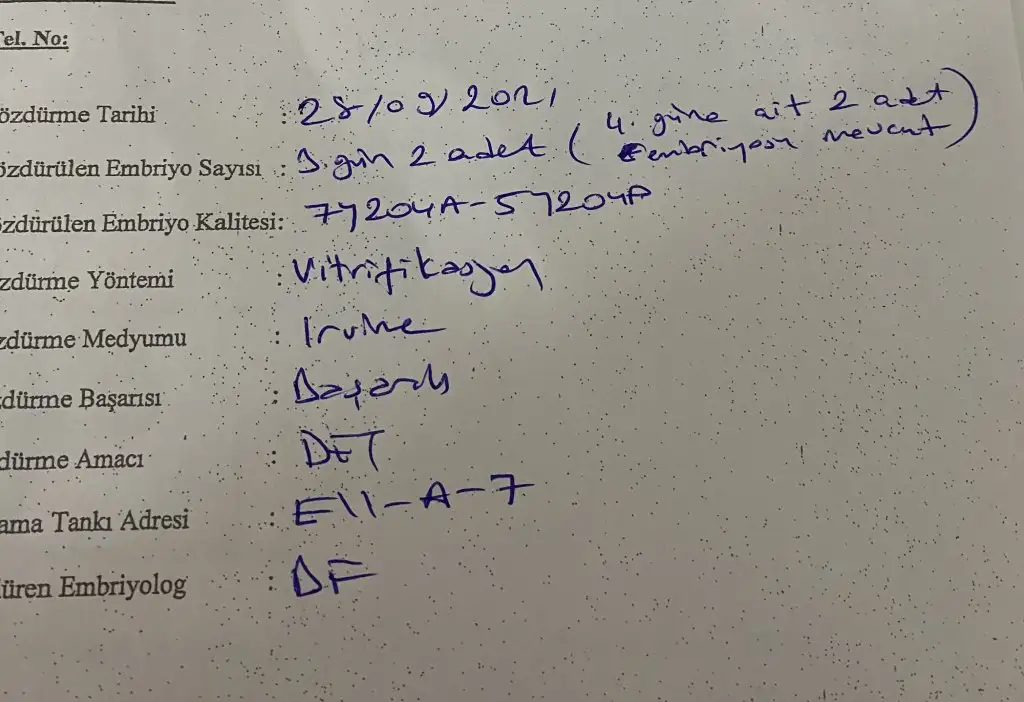 el. No:
özdürme Tarihi : 28/09/2021
özdürülen Embriyo Sayısı : 3. gün 2 adet ( 4. güne ait 2 adet
embriyosu mevcut )
zdürülen Embriyo Kalitesi:
zdürme Yöntemi : Vitrifikasyon
zdürme Medyumu : Irvine
dürme Başarısı : Başarılı
dürme Amacı : DET
ama Tankı Adresi : E11-A-7
üren Embriyolog : DF